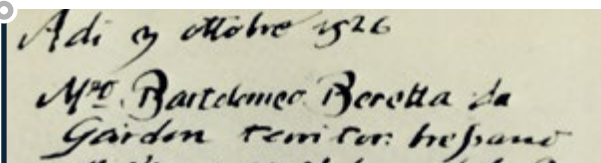 Adi 3 ottobre 1526
Mro. Bartolomeo Beretta da
Gardon territor: bressano